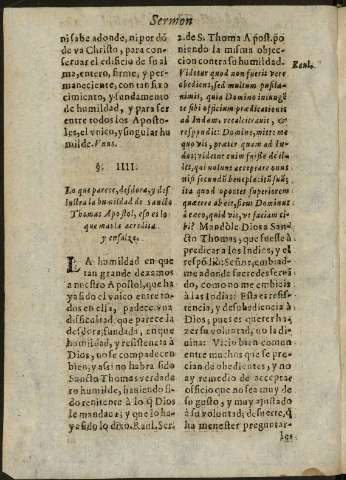 Sermon
ni sabe adonde, ni por dõ
de va Christo, para con-
seruar el edificio de su al
ma, entero, firme, y per-
maneciente, con tan fixo
cimiento, y fundamento
de humildad, y para ser
entre todos los Aposto-
les, el vnico, y singular hu
milde. Vnus.
§. IIII.
Lo que parece, desdora, y des
lustra la humildad de Sancto
Thomas Apostol, eso es lo
que mas la acredita
y ensalza.
LA humildad en que
tan grande dexamos
a nuestro Apostol, que ha
ya sido el vnico entre to-
dos en ella, padece vna
difficultad, que parece la
desdora, fundada, en que
humildad, y resistencia à
Dios, no se compadecen
bien; y assi no habra sido
Sancto Thomas verdade
ro humilde, hauiendo si-
do renitente à lo q̃ Dios
le mandaua; y que lo ha-
ya sido lo dixo. Raul, Ser.
2. de S. Thoma Apost. po
niendo la misma objec-
cion contra su humildad.
Videtur quod non fuerit vere
obediens, sed multum pusila-
nimis, quia Domino iniungẽ
te sibi officium prædicationis
ad Indam, recalcitrauit, &
respondit: Domine, mitte me
quo vis, præter quam ad In-
dos; videtur enim fuisse de il-
lis, qui nolunt acceptare onus
nisi secundũ beneplacitũ suũ;
ita quod oportet superiorem
quærere ab eis, sicut Dominus
à cæco, quid vis, vt faciam ti-
bi? Mandòle Dios a San-
cto Thomas, que fuesse à
predicar a los Indios, y el
respõdiò: Señor, embiad-
me adonde fueredes serui
do, como no me embieis
à las Indias: Esta es resis-
tencia, y desobediencia à
Dios, pues es querer ha-
zer su voluntad, no la di-
uina: Vicio bien comun
entre muchos que se pre-
cian de obedientes, y no
ay remedio de acceptar
officio que no sea muy de
su gusto, y muy ajustado
à su voluntad; de suerte, q̃
ha menester preguntar-
les
Raul.